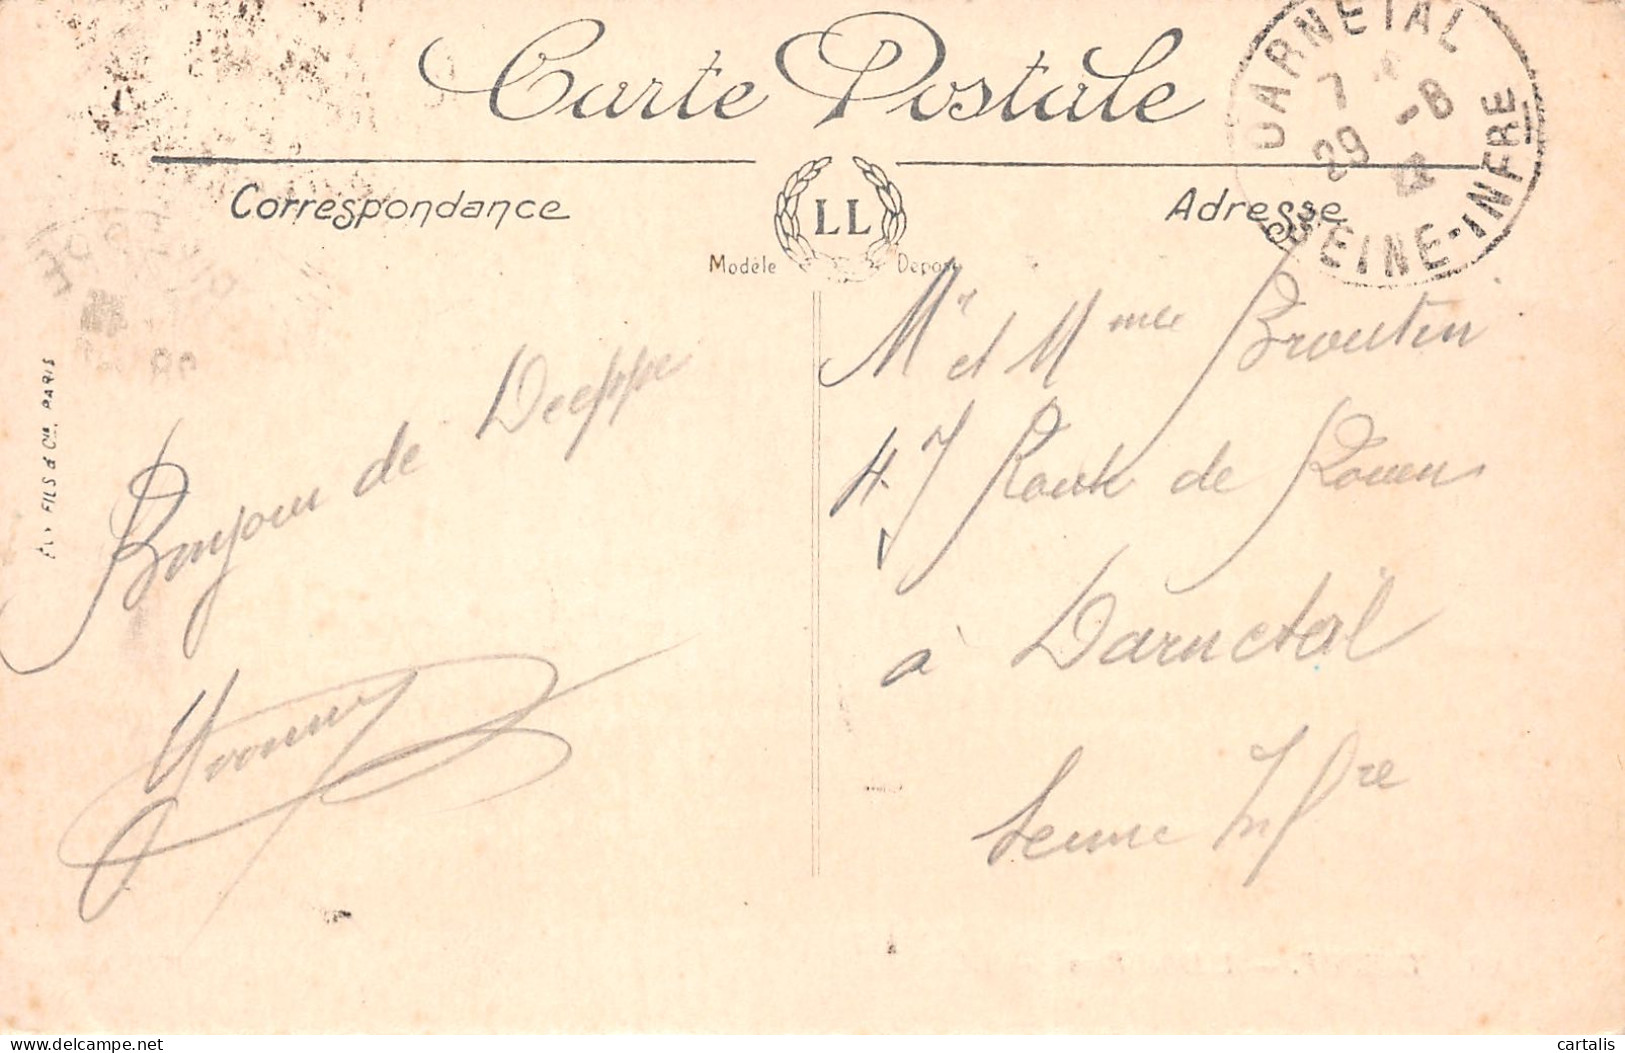 Carte Postale
Correspondance
LL
Adresse
Modèle
DARNETAL
7
29 -8
SEINE-INFRE
FILS & Cie. PARIS
Bonjour de Dieppe
Yvonne
Mr et Mme Brouten
47 Route de Rouen
à Darnetal
Seine Infre
delcampe.net
cartalis